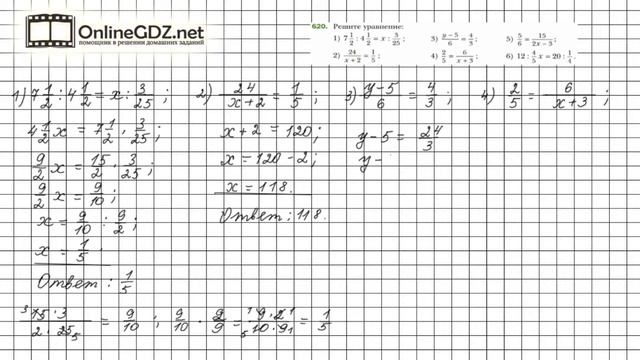 OnlineGDZ.net
помощник в решении домашних заданий
620. Решите уравнение:
1) 7 1/2 : 4 1/2 = x : 3/25 ;
3) (y − 5)/6 = 4/3 ;
5) 5/6 = 15/(2x − 3) ;
2) 24/(x + 2) = 1/5 ;
4) 2/5 = 6/(x + 3) ;
6) 12 : 4/5 x = 20 : 1/4 .
1) 7 1/2 : 4 1/2 = x : 3/25 ;
4 1/2 x = 7 1/2 · 3/25 ;
9/2 x = 15/2 · 3/25 ;
9/2 x = 9/10 ;
x = 9/10 : 9/2 ;
x = 1/5 .
Ответ : 1/5
2) 24/(x + 2) = 1/5 ;
x + 2 = 120 ;
x = 120 − 2 ;
x = 118 .
Ответ : 118 .
3) (y − 5)/6 = 4/3 ;
y − 5 = 24/3
y −
4) 2/5 = 6/(x + 3) ;
(15 · 3)/(2 · 25) = 9/10 ; 9/10 · 2/9 = (9 · 2)/(10 · 9) = 1/5